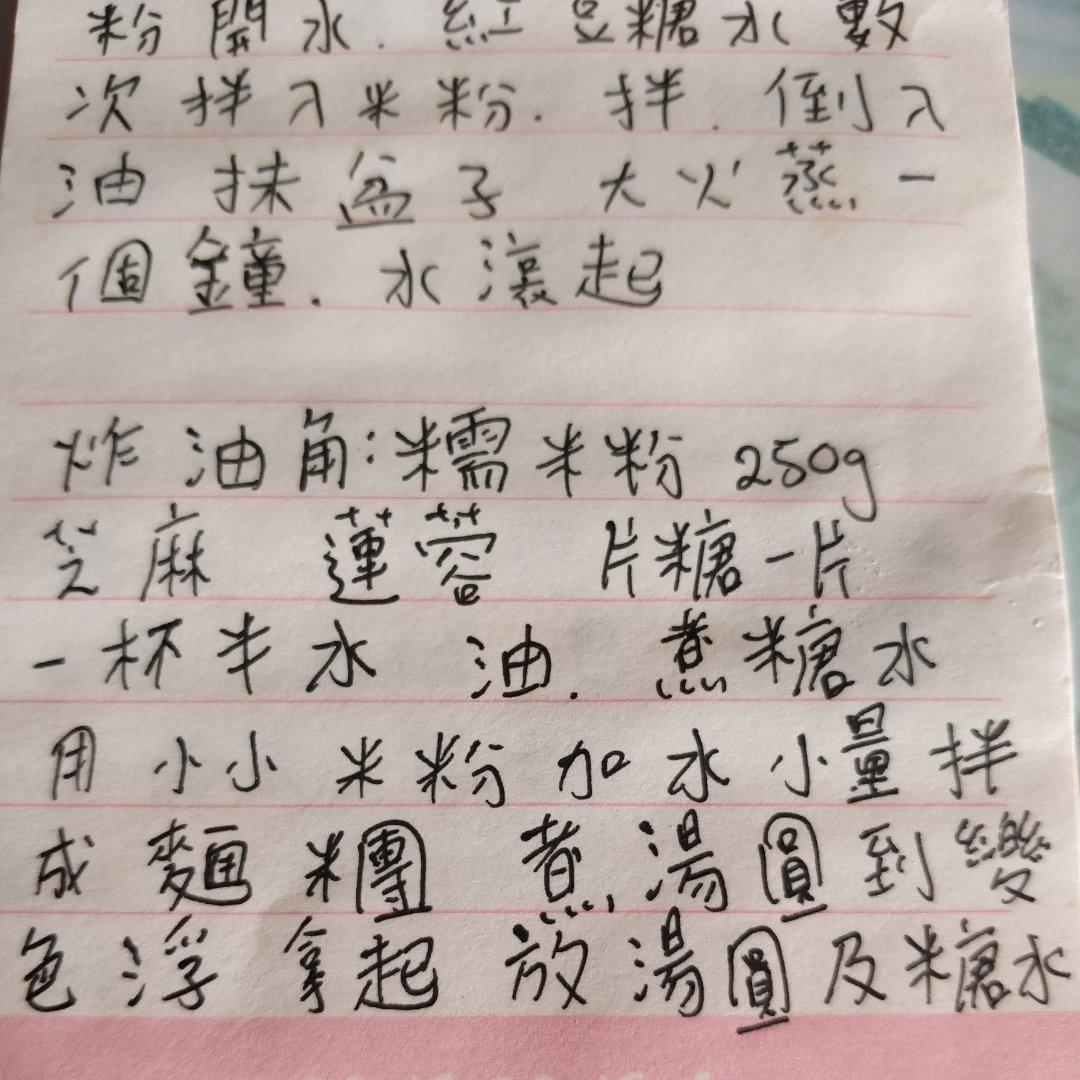 粉開水. 紅豆糖水數
次拌入米粉. 拌. 倒入
油抹盆子 大火蒸一
個鐘. 水滾起
炸油角:糯米粉 250g
芝麻 蓮蓉 片糖一片
一杯半水 油. 煮糖水
用小小米粉加水小量拌
成麵糰 煮湯圓到變
色浮拿起 放湯圓及糖水